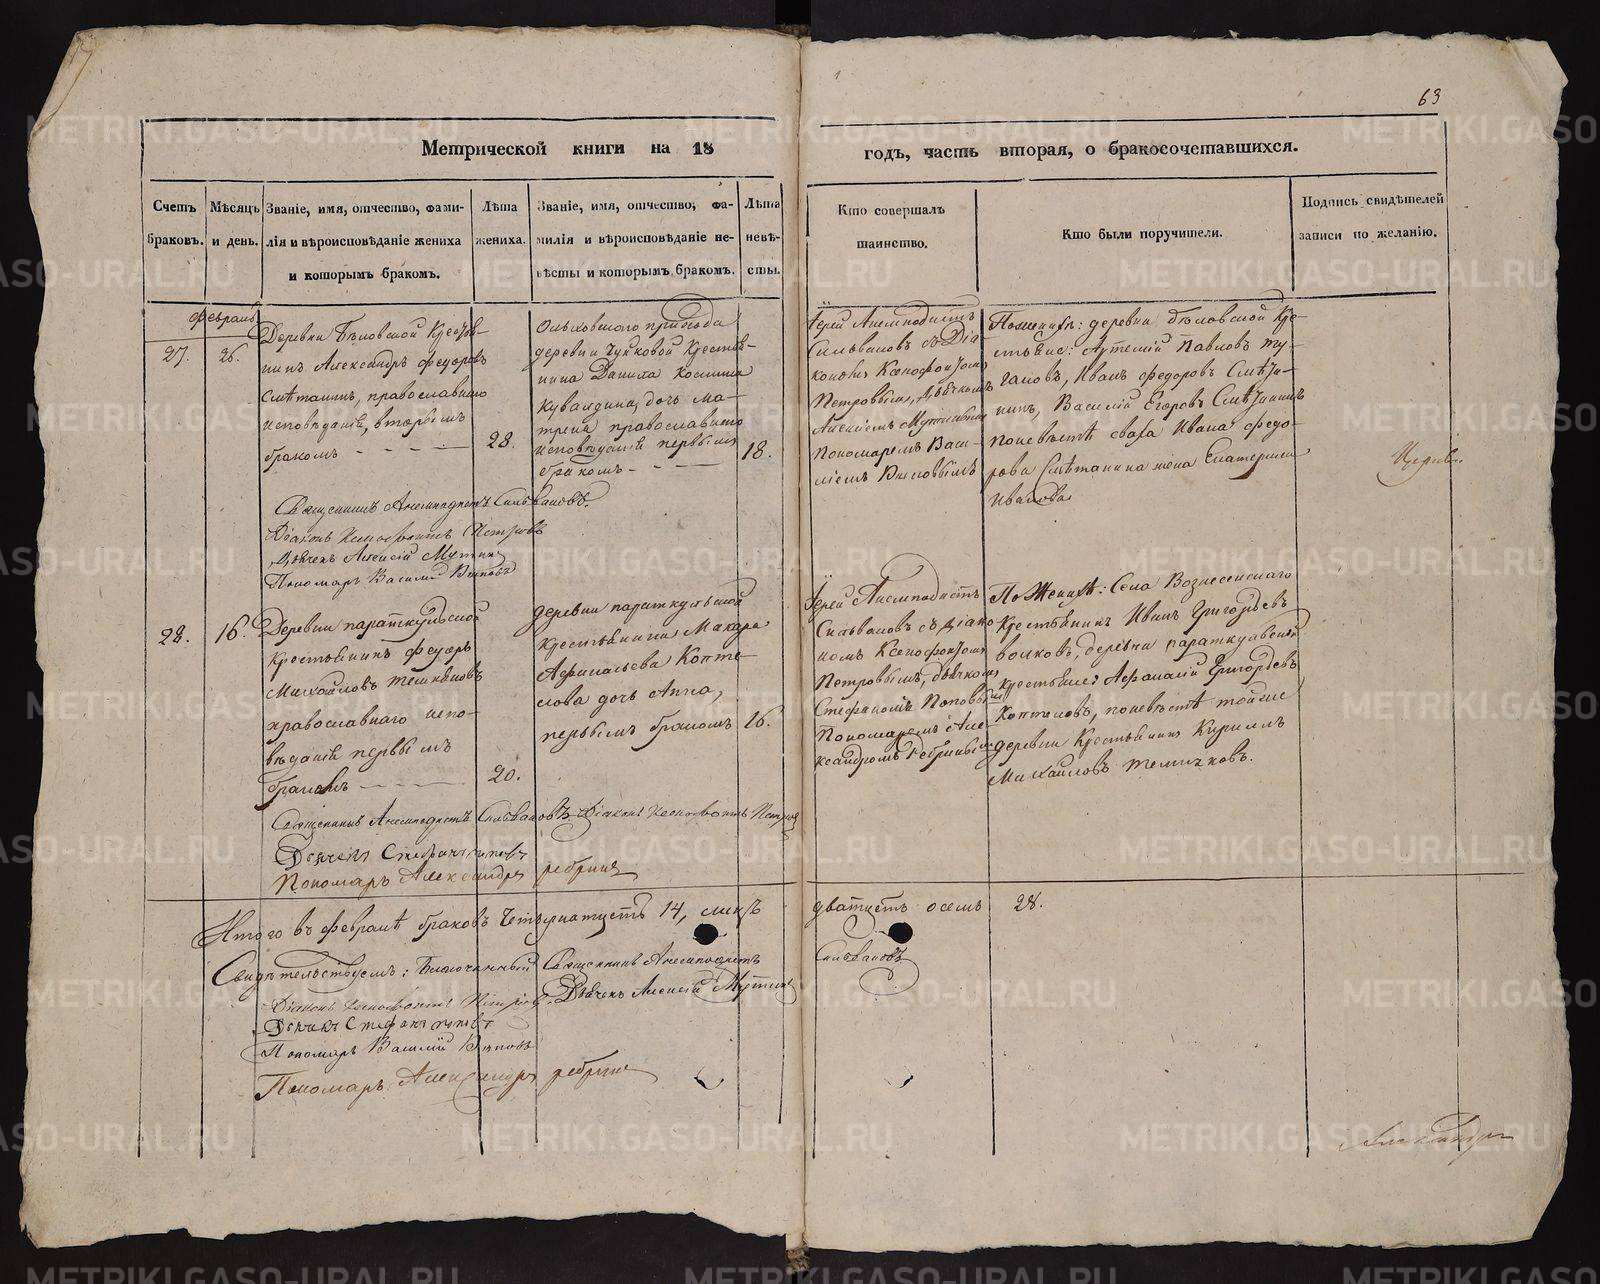 63
Метрической книги на 18
годъ, часть вторая, о бракосочетавшихся.
Счетъ браковъ.
Мѣсяцъ и день.
Званіе, имя, отчество, фами-
лія и вѣроисповѣданіе жениха
и которымъ бракомъ.
Лѣта
жениха.
Званіе, имя, отчество, фа-
милія и вѣроисповѣданіе не-
вѣсты и которымъ бракомъ.
Лѣта
невѣ-
сты.
Кто совершалъ
таинство.
Кто были поручители.
Подпись свидѣтелей
записи по желанію.
Февраль
27.
26.
Деревни Бѣловской Кресть-
нинъ Александръ Федоровъ
Смѣтанинъ, православнаго
исповѣданія, вторымъ
бракомъ
28.
Ольховского прихода
деревни Чуйковой Крестья-
нина Данила Космина
Кувалдина, дочь Ма-
трена православнаго
исповѣданія первымъ
бракомъ
18.
Іерей Анемподистъ
Сильвановъ съ Діа-
кономъ Ксенофонтомъ
Петровымъ, Дьячкомъ
Алексіемъ Мутинымъ
Пономаремъ Васи-
ліемъ
По женихѣ: деревни бѣловской Кре-
стьяне: Артемій Павловъ
Иванъ Федоровъ Смѣта-
нинъ, Василій Егоровъ Смѣтанинъ
по невѣстѣ сваха Ивана Федо-
рова Смѣтанина жена Екатерина
Иванова
Священникъ Анемподистъ Сильвановъ.
Діаконъ Ксенофонтъ Петровъ
Дьячекъ Алексій Мутинъ
Пономарь Василій
28.
16.
Деревни параткульской
Крестьянинъ Федоръ
Михайловъ
православнаго испо-
вѣданія первымъ
бракомъ
20.
деревни параткульской
Крестьянина Макара
Афанасьева Копте-
лова дочь Анна,
первымъ бракомъ
16.
Іерей Анемподистъ
Сильвановъ съ діако-
номъ Ксенофонтомъ
Петровымъ, дьячкомъ
Стефаномъ Поповымъ
Пономаремъ Але-
ксандромъ Ребринымъ
По Женихѣ: Села Вознесенскаго
Крестьянинъ Иванъ Григорьевъ
волковъ, деревни параткульской
крестьяне: Афанасій Григорьевъ
Коптеловъ, по невѣстѣ тойже
деревни Крестьянинъ Кириллъ
Михайловъ
Священникъ Анемподистъ Сильвановъ Діаконъ Ксенофонтъ Петровъ
Дьячекъ Стефанъ Поповъ
Пономарь Александръ ребринъ
Итого въ февралѣ браковъ Четырнатцеть 14,
дватцеть осемь 28.
Свидѣтельствуемъ: Благочинный Священникъ Анемподистъ
Сильвановъ
Діаконъ Ксенофонтъ Петровъ. Дьячекъ Алексій Мутинъ
Дьячекъ Стефанъ Поповъ
Пономарь Василій
Пономарь Александръ ребринъ